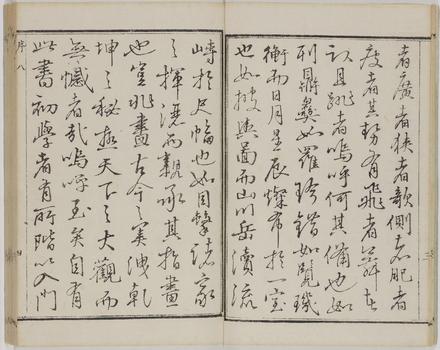 者廣者狹者歌側者肥者
瘦者其勢有飛者舞者
臥且跳者嗚呼何其備也如
列鼎彝如羅珍錯如覽璣
衡而日月星辰燦布於一室
也如披輿圖而山川岳瀆流
峙於尺幅也如目擊諸家
之揮灑而親承其指畫
也豈非畫古今寞洩乾
坤之秘極天下之大觀而
無憾者哉嗚呼至矣自有
此書初學者有所階以入門
序八